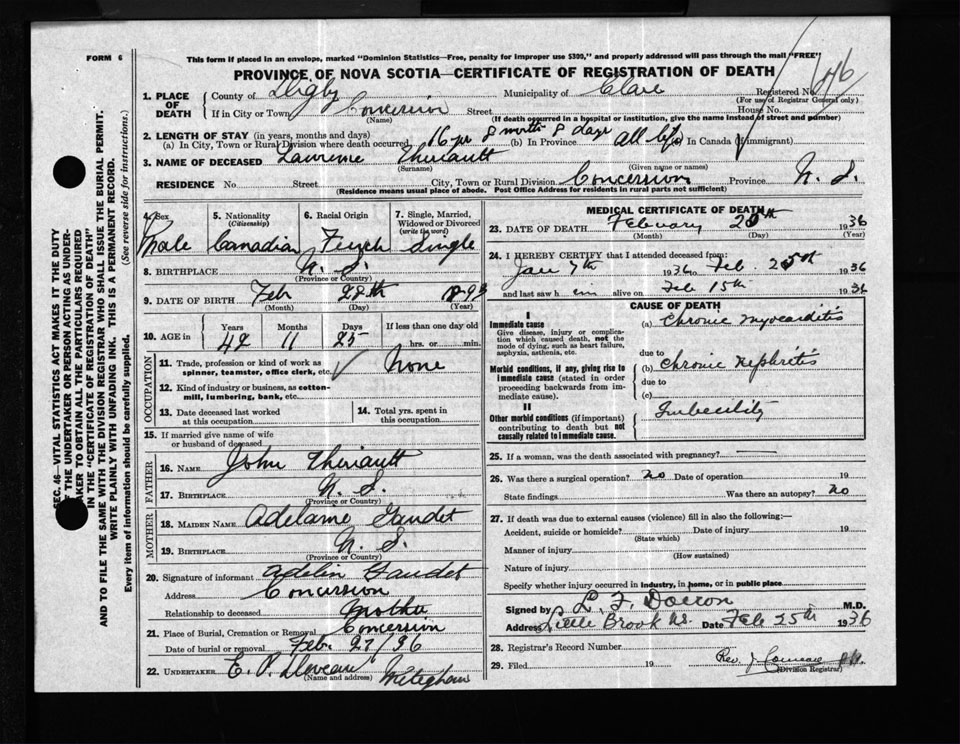 FORM 6
This form if placed in an envelope, marked "Dominion Statistics—Free, penalty for improper use $300," and properly addressed will pass through the mail "FREE"
PROVINCE OF NOVA SCOTIA—CERTIFICATE OF REGISTRATION OF DEATH
1. PLACE OF DEATH County of Digby Municipality of Clare Registered No.
(For use of Registrar General only)
If in City or Town Concession Street House No.
(Name) (If death occurred in a hospital or institution, give the name instead of street and number)
2. LENGTH OF STAY (in years, months and days)
(a) In City, Town or Rural Division where death occurred 16 yr 8 month 8 days (b) In Province All life In Canada (if immigrant)
3. NAME OF DECEASED Lawrence Theriault
(Surname) (Given name or names)
RESIDENCE No Street City, Town or Rural Division Concession Province N. S.
(Residence means usual place of abode. Post Office Address for residents in rural parts not sufficient)
4. Sex Male
5. Nationality (Citizenship) Canadian
6. Racial Origin French
7. Single, Married, Widowed or Divorced (write the word) Single
8. BIRTHPLACE N. S.
(Province or Country)
9. DATE OF BIRTH Feb 28th
(Month) (Day) (Year)
10. AGE in Years Months 11 Days 25 If less than one day old hrs. or min.
OCCUPATION
11. Trade, profession or kind of work as spinner, teamster, office clerk, etc. None
12. Kind of industry or business, as cotton-mill, lumbering, bank, etc.
13. Date deceased last worked at this occupation
14. Total yrs. spent in this occupation
15. If married give name of wife or husband of deceased
FATHER
16. NAME John Theriault
17. BIRTHPLACE N. S.
(Province or Country)
MOTHER
18. MAIDEN NAME Adelaine Gaudet
19. BIRTHPLACE N. S.
(Province or Country)
20. Signature of informant Adelin Gaudet
Address Concession
Relationship to deceased Mother
21. Place of Burial, Cremation or Removal Concession
Date of burial or removal Feb. 27/36
22. UNDERTAKER E. P. Meteghan
(Name and address)
MEDICAL CERTIFICATE OF DEATH
23. DATE OF DEATH February 1936
(Month) (Day) (Year)
24. I HEREBY CERTIFY that I attended deceased from:
Jan 7th 1936 to Feb. 1936
and last saw h im alive on Feb 15th 1936
CAUSE OF DEATH
I
Immediate cause
Give disease, injury or complication which caused death, not the mode of dying, such as heart failure, asphyxia, asthenia, etc.
(a) Chronic Myocarditis
due to
Morbid conditions, if any, giving rise to immediate cause (stated in order proceeding backwards from immediate cause).
(b) Chronic Nephritis
due to
(c)
II
Other morbid conditions (if important) contributing to death but not causally related to immediate cause.
Imbecility
25. If a woman, was the death associated with pregnancy?
26. Was there a surgical operation? No Date of operation 19
State findings Was there an autopsy? No
27. If death was due to external causes (violence) fill in also the following:—
Accident, suicide or homicide? Date of injury 19
(State which)
Manner of injury
(How sustained)
Nature of injury
Specify whether injury occurred in industry, in home, or in public place
Signed by L. F. Doiron M.D.
Address Little Brook N.S. Date Feb 25th 1936
28. Registrar's Record Number
29. Filed 19 Rev. J Comeau
(Division Registrar)
SEC. 46—VITAL STATISTICS ACT MAKES IT THE DUTY OF THE UNDERTAKER OR PERSON ACTING AS UNDERTAKER TO OBTAIN ALL THE PARTICULARS REQUIRED IN THE "CERTIFICATE OF REGISTRATION OF DEATH"
AND TO FILE THE SAME WITH THE DIVISION REGISTRAR WHO SHALL ISSUE THE BURIAL PERMIT.
WRITE PLAINLY WITH UNFADING INK. THIS IS A PERMANENT RECORD.
Every item of information should be carefully supplied. (See reverse side for instructions.)